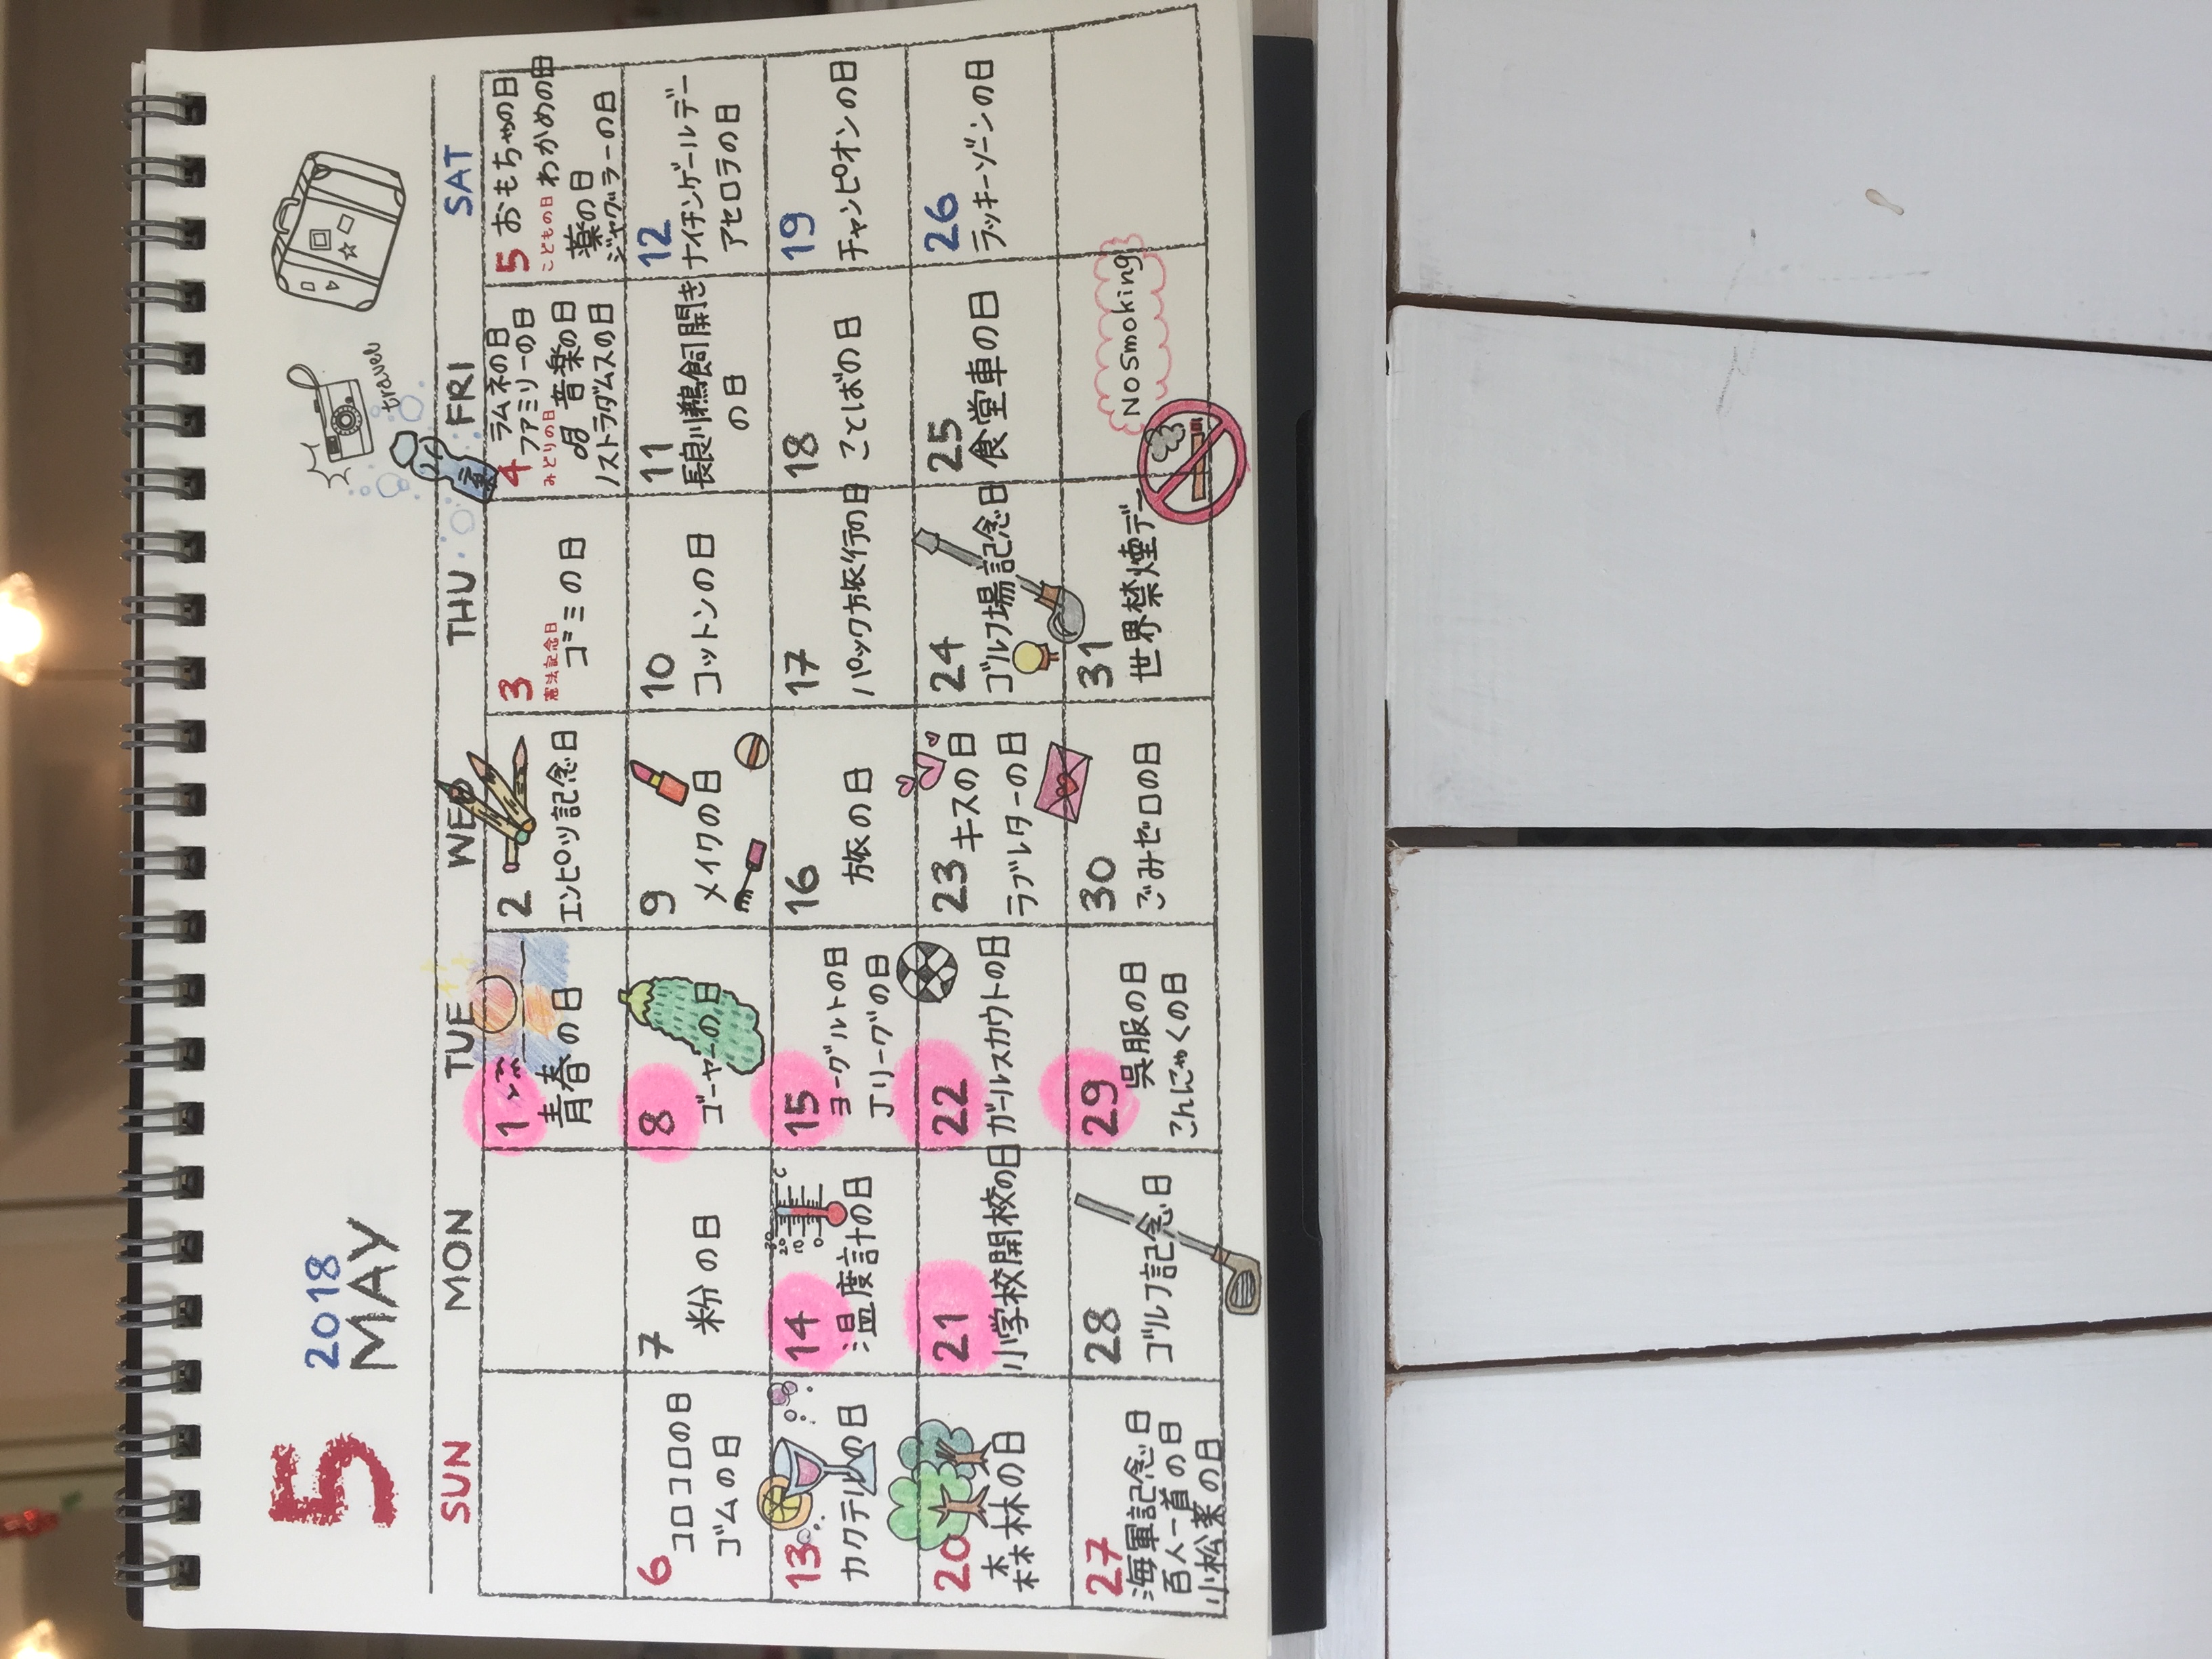 5
2018
MAY
travel
SUN MON TUE WED THU FRI SAT
1
青春の日
2
エンピツ記念日
3
憲法記念日
ゴミの日
4
ラムネの日
ファミリーの日
みどりの日
音楽の日
ノストラダムスの日
5 おもちゃの日
こどもの日 わかめの日
薬の日
ジャグラーの日
6
コロコロの日
ゴムの日
7
粉の日
8
ゴーヤーの日
9
メイクの日
10
コットンの日
11
長良川鵜飼開き
の日
12
ナイチンゲールデー
アセロラの日
13
カクテルの日
14
30
20
10
0
℃
温度計の日
15
ヨーグルトの日
Jリーグの日
16
旅の日
17
パック旅行の日
18
ことばの日
19
チャンピオンの日
20
森林の日
21
小学校開校の日
22
ガールスカウトの日
23 キスの日
ラブレターの日
24
ゴルフ場記念日
25
食堂車の日
26
ラッキーゾーンの日
27
海軍記念日
百人一首の日
小松菜の日
28
ゴルフ記念日
29
呉服の日
こんにゃくの日
30
ごみゼロの日
31
世界禁煙デー
NO Smoking